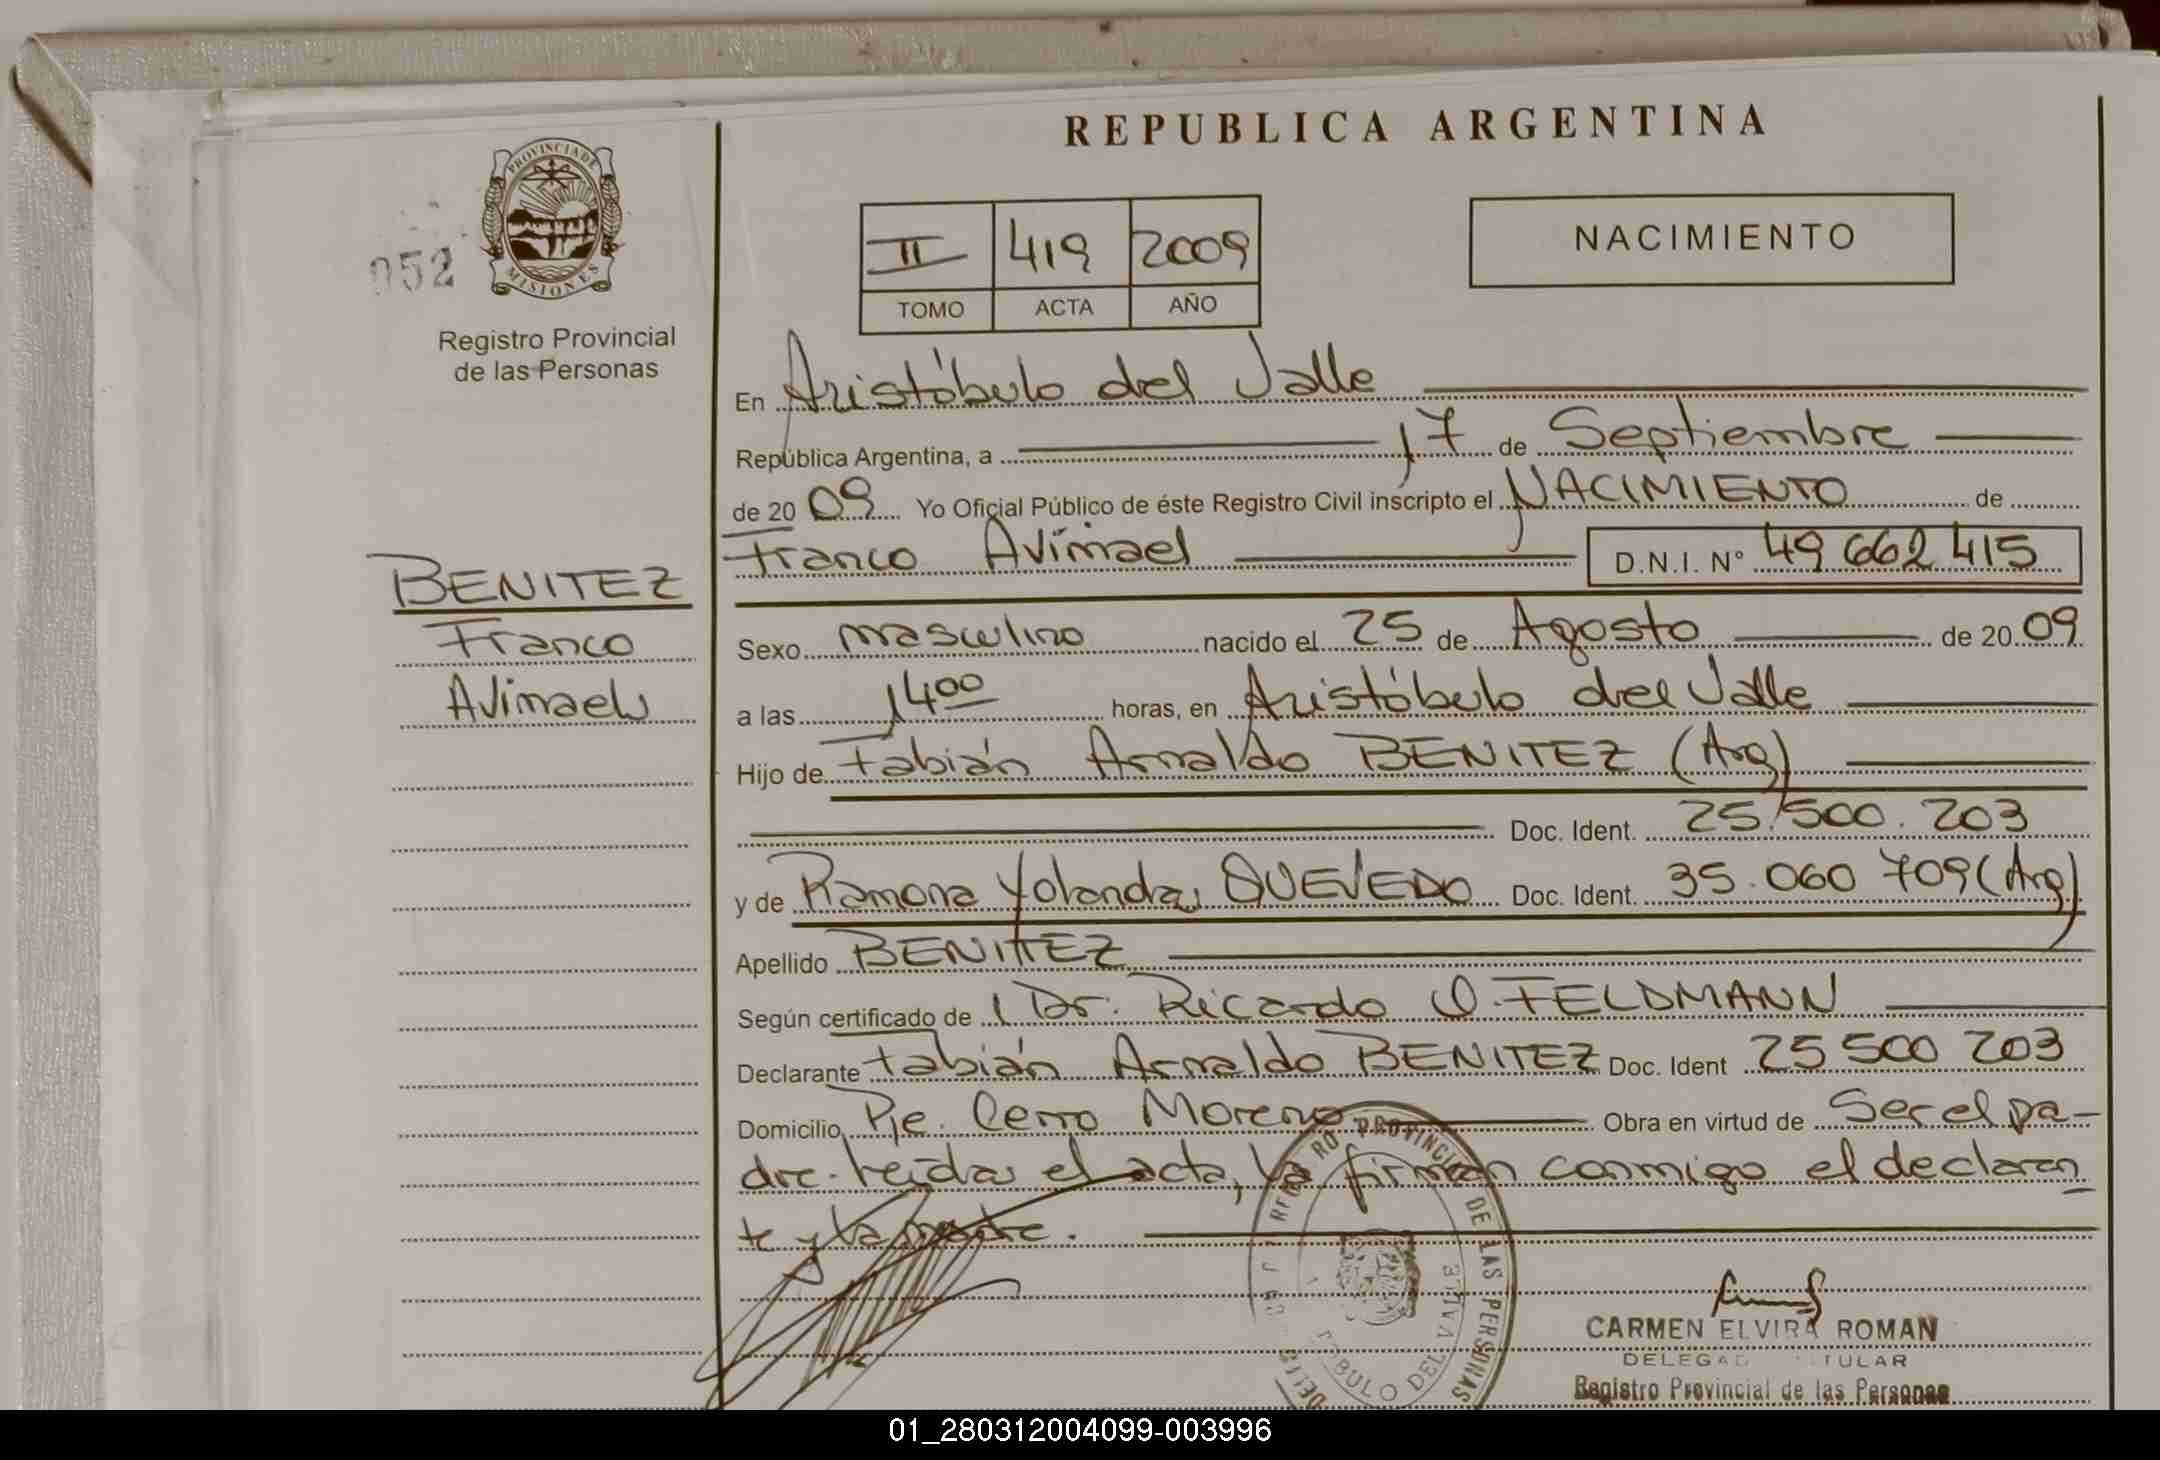 REPUBLICA ARGENTINA
PROVINCIA DE
MISIONES
052
Registro Provincial
de las Personas
II 419 2009
TOMO ACTA AÑO
NACIMIENTO
En Aristóbulo del Valle
República Argentina, a 17 de Septiembre
de 2009 Yo Oficial Público de éste Registro Civil inscripto el NACIMIENTO de
Franco Avimael D.N.I. Nº 49 662 415
BENITEZ
Franco
Avimael
Sexo masculino nacido el 25 de Agosto de 2009
a las 14 00 horas, en Aristóbulo del Valle
Hijo de Fabián Arnaldo BENITEZ (Arg)
Doc. Ident. 25.500.203
y de Ramona Yolanda QUEVEDO Doc. Ident. 35.060 709 (Arg)
Apellido BENITEZ
Según certificado de Dr. Ricardo O. FELDMANN
Declarante Fabián Arnaldo BENITEZ Doc. Ident 25 500 203
Domicilio Pje. Cerro Moreno Obra en virtud de Ser el pa-
dre. Leída el acta, la firman conmigo el declaran
te y la madre.
PROVINCIAL DE LAS PERSONAS
DEL VALLE
CARMEN ELVIRA ROMAN
Registro Provincial de las Personas
01_280312004099-003996